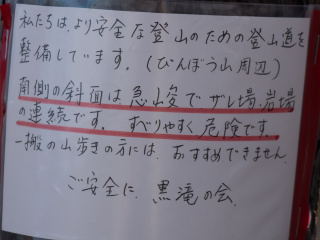 私たちは、より安全な登山のための登山道を
整備しています。(びんぼう山周辺)
南側の斜面は急峻でザレ場、岩場
の連続です。すべりやすく危険です。
一般の山歩きの方には、おすすめできません。
ご安全に、黒滝の会、